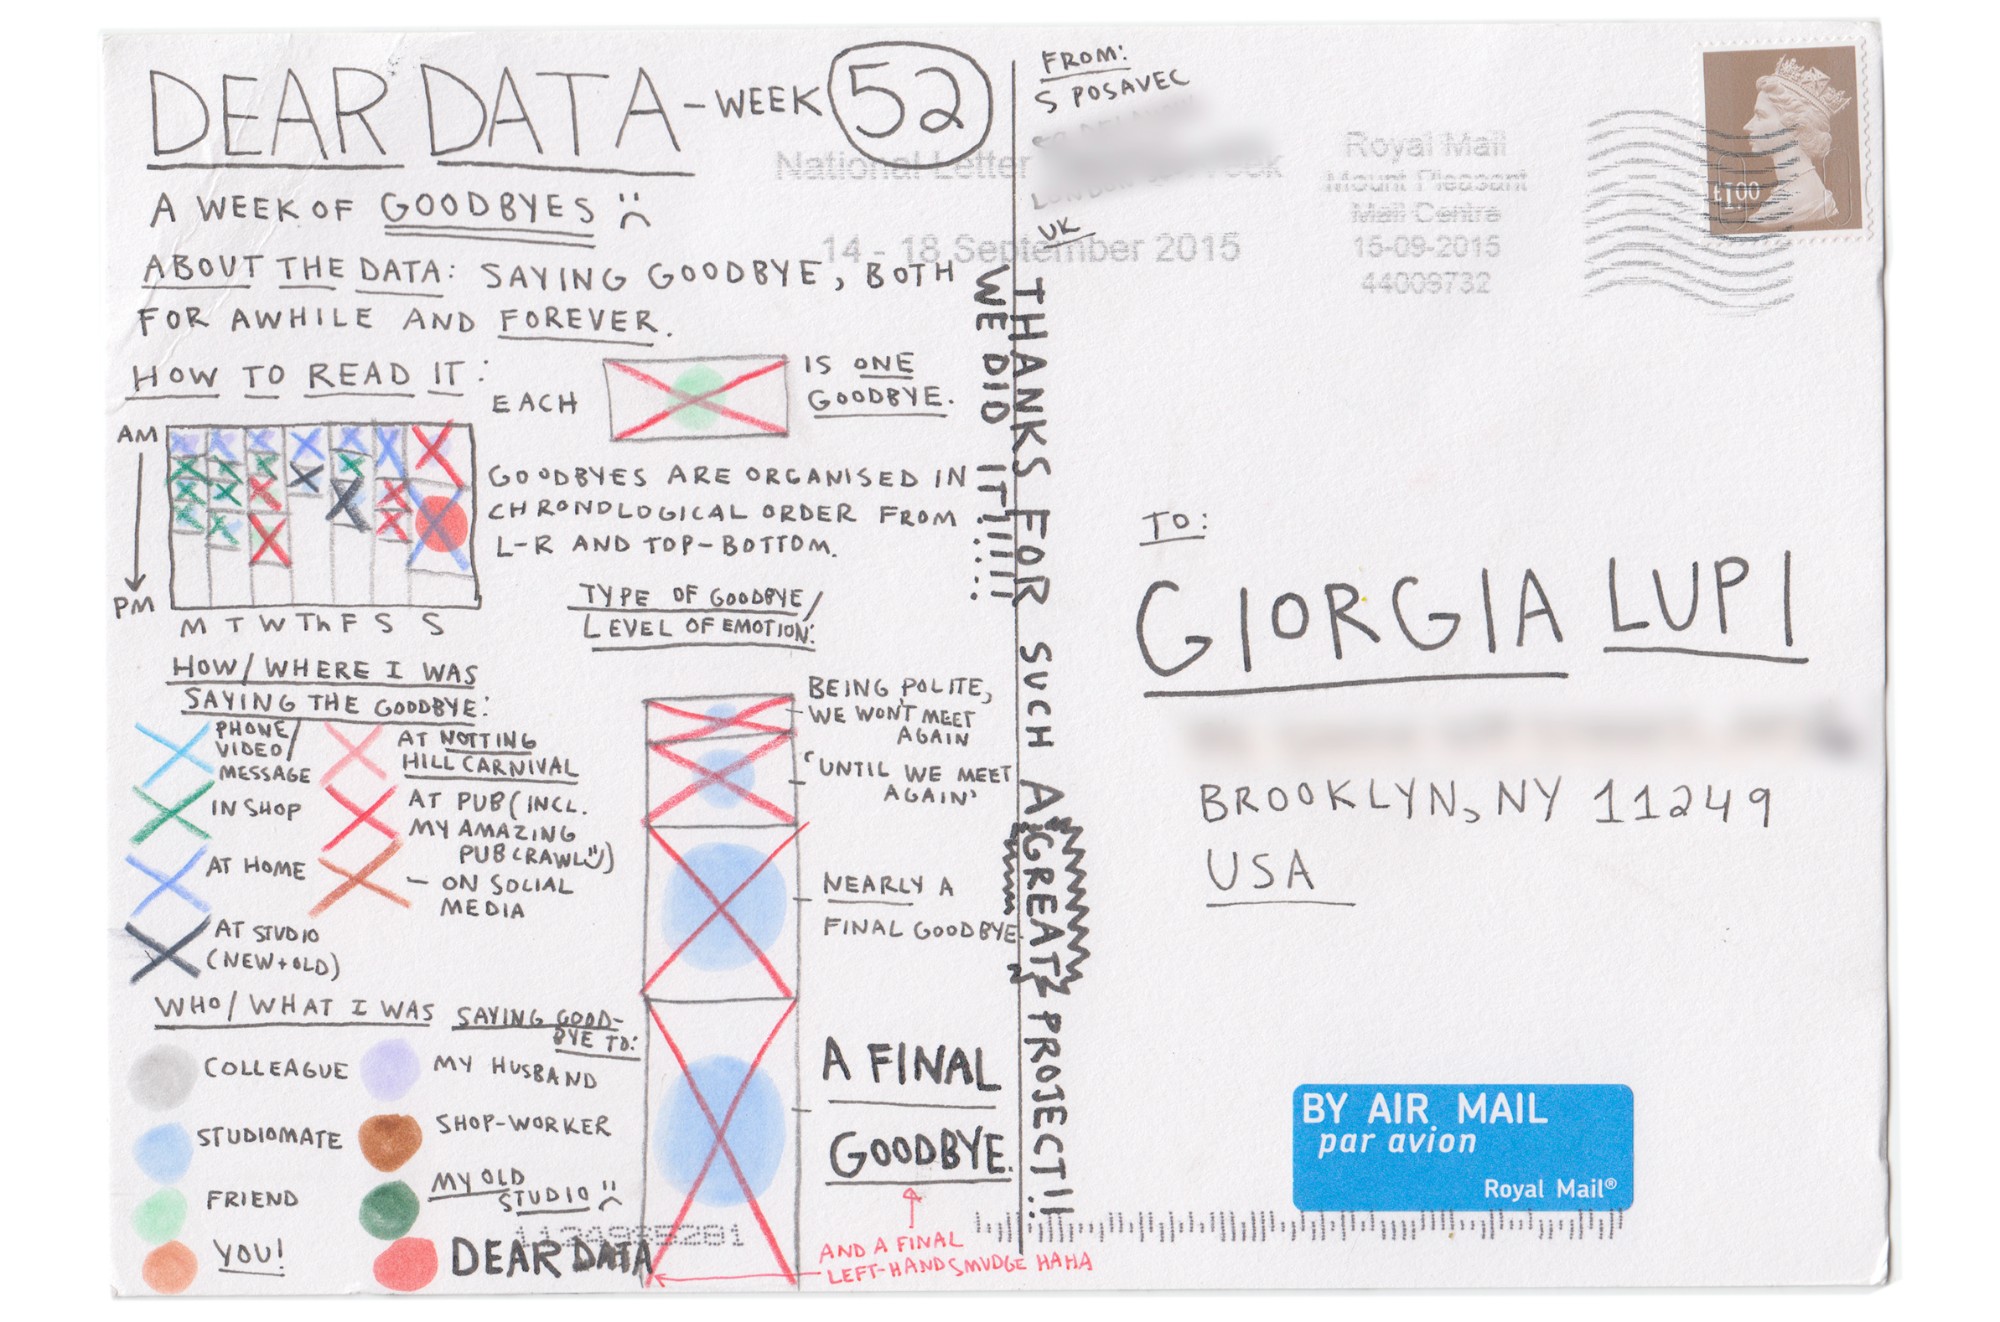 DEAR DATA - WEEK 52
A WEEK OF GOODBYES :(
ABOUT THE DATA: SAYING GOODBYE, BOTH
FOR AWHILE AND FOREVER.
HOW TO READ IT:
EACH
IS ONE
GOODBYE.
AM
PM
M T W Th F S S
GOODBYES ARE ORGANISED IN
CHRONOLOGICAL ORDER FROM
L-R AND TOP-BOTTOM.
TYPE OF GOODBYE/
LEVEL OF EMOTION:
BEING POLITE,
WE WON'T MEET
AGAIN
'UNTIL WE MEET
AGAIN'
NEARLY A
FINAL GOODBYE
A FINAL
GOODBYE.
AND A FINAL
LEFT-HAND SMUDGE HAHA
HOW/WHERE I WAS
SAYING THE GOODBYE:
PHONE/
VIDEO/
MESSAGE
IN SHOP
AT HOME
AT STUDIO
(NEW+OLD)
AT NOTTING
HILL CARNIVAL
AT PUB (INCL.
MY AMAZING
PUB CRAWL :))
- ON SOCIAL
MEDIA
WHO/WHAT I WAS SAYING GOOD-
BYE TO:
COLLEAGUE
STUDIOMATE
FRIEND
YOU!
MY HUSBAND
SHOP-WORKER
MY OLD
STUDIO :(
DEAR DATA
THANKS FOR SUCH A GREAT PROJECT!!
WE DID IT!!!!!
FROM:
S POSAVEC
UK
National Letter
14 - 18 September 2015
Royal Mail
Mount Pleasant
Mail Centre
15-09-2015
44009732
£1.00
TO:
GIORGIA LUPI
BROOKLYN, NY 11249
USA
BY AIR MAIL
par avion
Royal Mail®